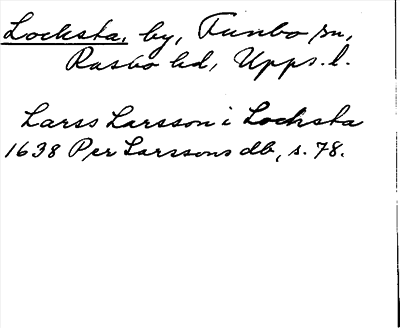 Locksta, by, Funbo sn,
Rasbo hd, Upps. l.
Larss Larsson i Locksta
1638 Per Larssons db, s. 78.